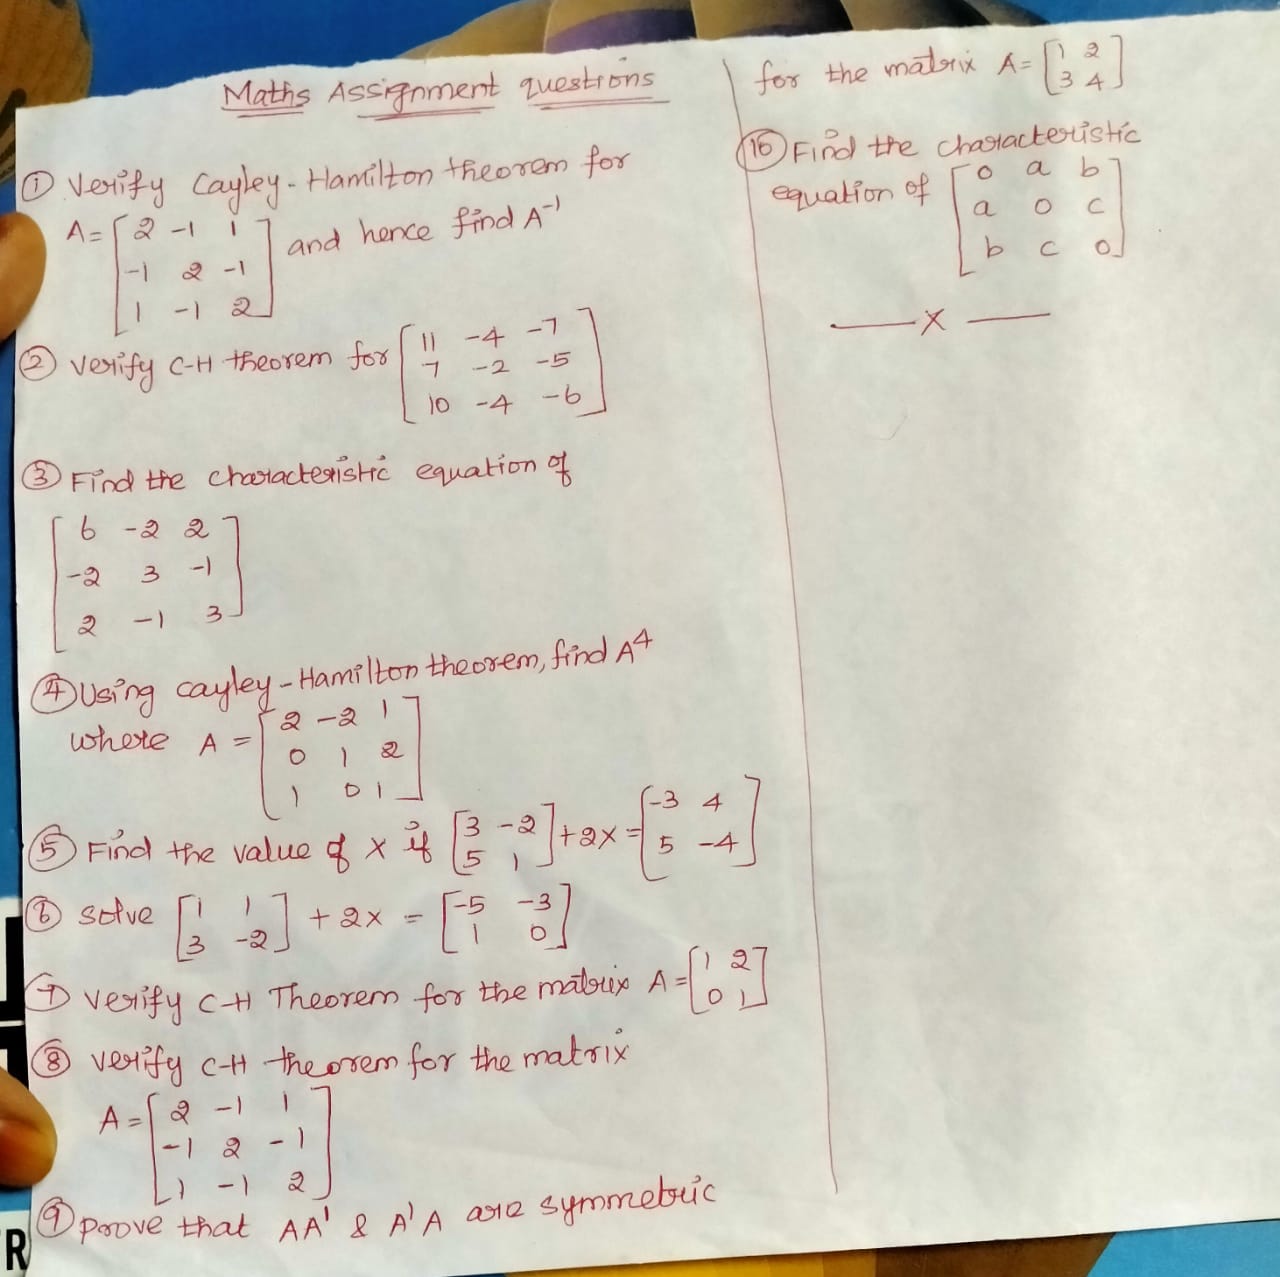 Maths Assignment questions
① Verify Cayley-Hamilton theorem for
A = [ 2 -1 1
-1 2 -1
1 -1 2 ] and hence find A⁻¹
② Verify C-H theorem for [ 11 -4 -7
7 -2 -5
10 -4 -6 ]
③ Find the characteristic equation of
[ 6 -2 2
-2 3 -1
2 -1 3 ]
④ Using Cayley-Hamilton theorem, find A⁴
where A = [ 2 -2 1
0 1 2
1 0 1 ]
⑤ Find the value of x if [ 3 -2
5 1 ] + 2x = [ -3 4
5 -4 ]
⑥ solve [ 1 1
3 -2 ] + 2x = [ -5 -3
1 0 ]
⑦ Verify C-H Theorem for the matrix A = [ 1 2
0 1 ]
⑧ Verify C-H theorem for the matrix
A = [ 2 -1 1
-1 2 -1
1 -1 2 ]
⑨ prove that AA' & A'A are symmetric
for the matrix A = [ 1 2
3 4 ]
⑩ Find the characteristic
equation of [ 0 a b
a 0 c
b c 0 ]
— x —
R